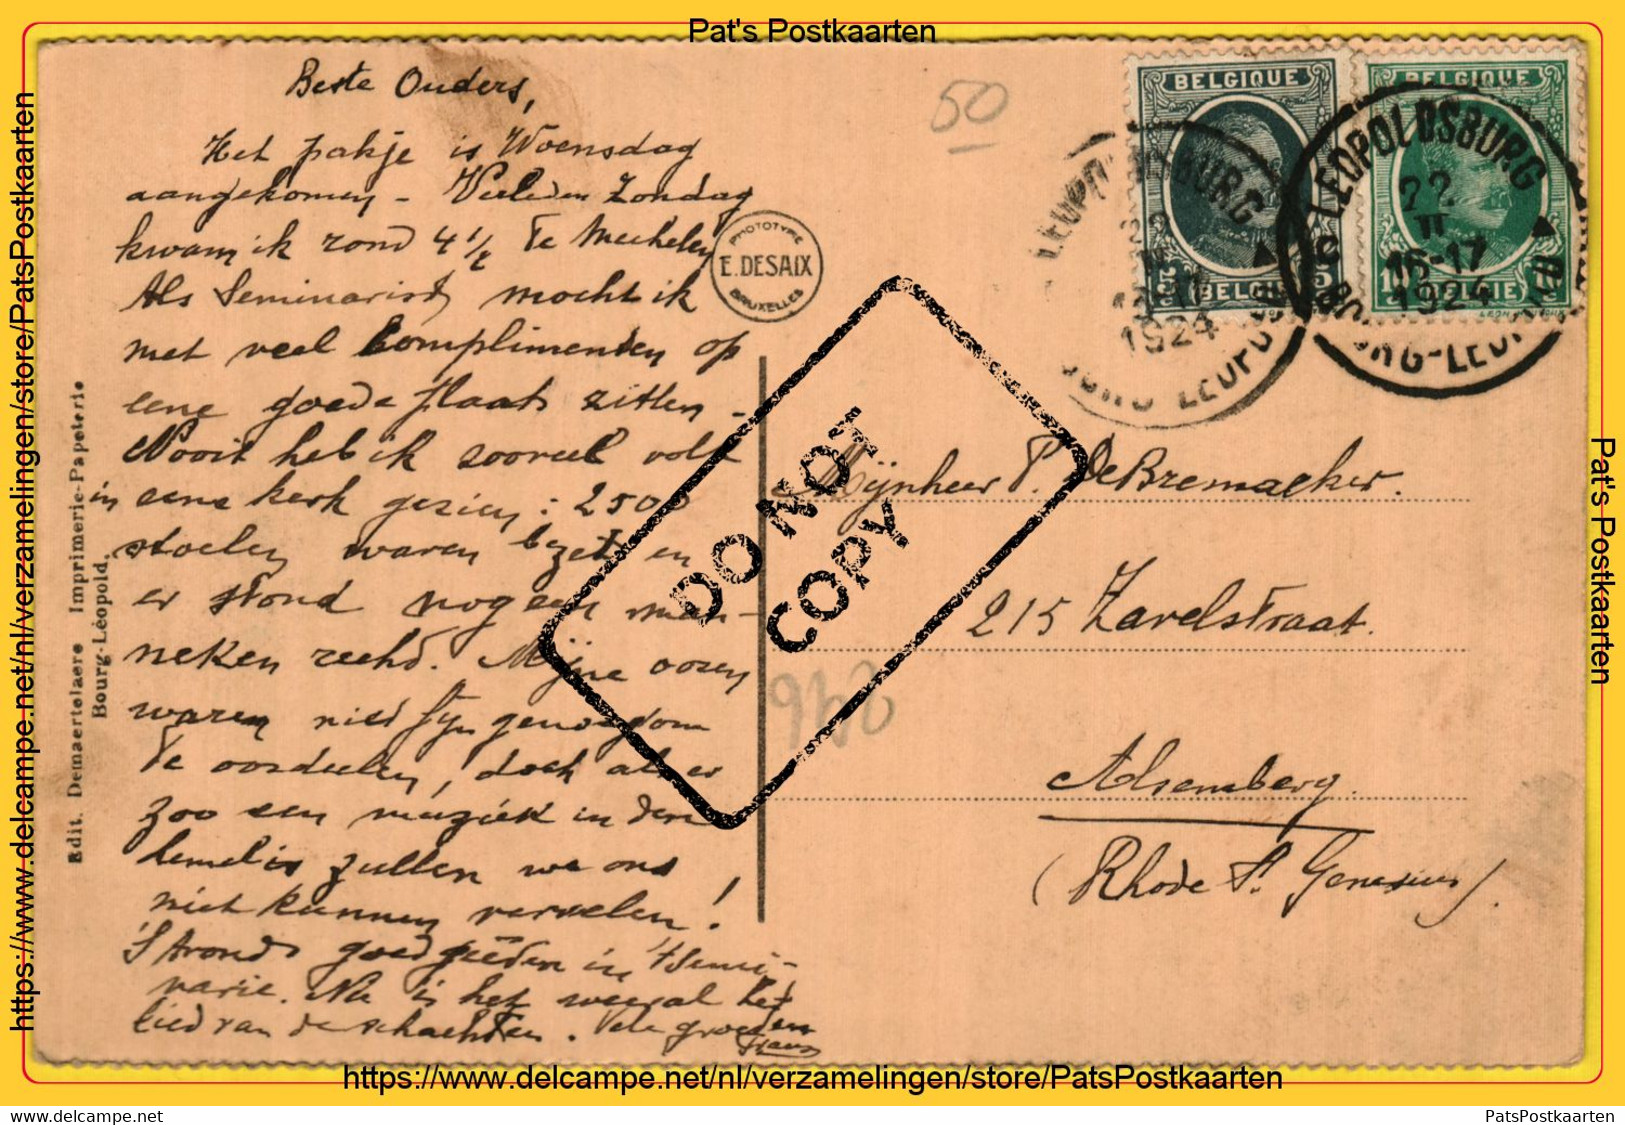 Pat's Postkaarten
Beste Ouders,
Het pakje is Woensdag
aangekomen - Verleden Zondag
kwam ik rond 4 ½ te Mechelen
Als Seminarist mocht ik
met veel Complimenten op
eene goede plaats zitten -
Nooit heb ik zooveel volk
in eene kerk gezien : 2500
stoelen waren bezet en
er stond nog een man-
neken recht. Mijne ooren
waren niet fijn genoeg om
te oordeelen, doch als er
zoo een muziek in den
hemel is zullen we ons
niet kunnen vervelen!
'S avonds goed in 't Semi-
narie. Nu is het weeral het
lied van de schachten. Vele groeten
Frans
50
BELGIQUE
BELGIQUE
BELGIË
BELGIË
LEOPOLDSBURG
22
II
16-17
1924
BOURG-LEOPOLD
LEOPOLDSBURG
1924
BOURG-LEOPOLD
PHOTOTYPIE
E. DESAIX
BRUXELLES
DO NOT
COPY
Mijnheer P. De Bremaeker.
215 Zavelstraat.
Alsemberg.
(Rhode St. Genesius).
Edit. Demaertelaere Imprimerie-Papeterie
Bourg-Léopold.
https://www.delcampe.net/nl/verzamelingen/store/PatsPostkaarten
Pat's Postkaarten
https://www.delcampe.net/nl/verzamelingen/store/PatsPostkaarten
https://www.delcampe.net
PatsPostkaarten